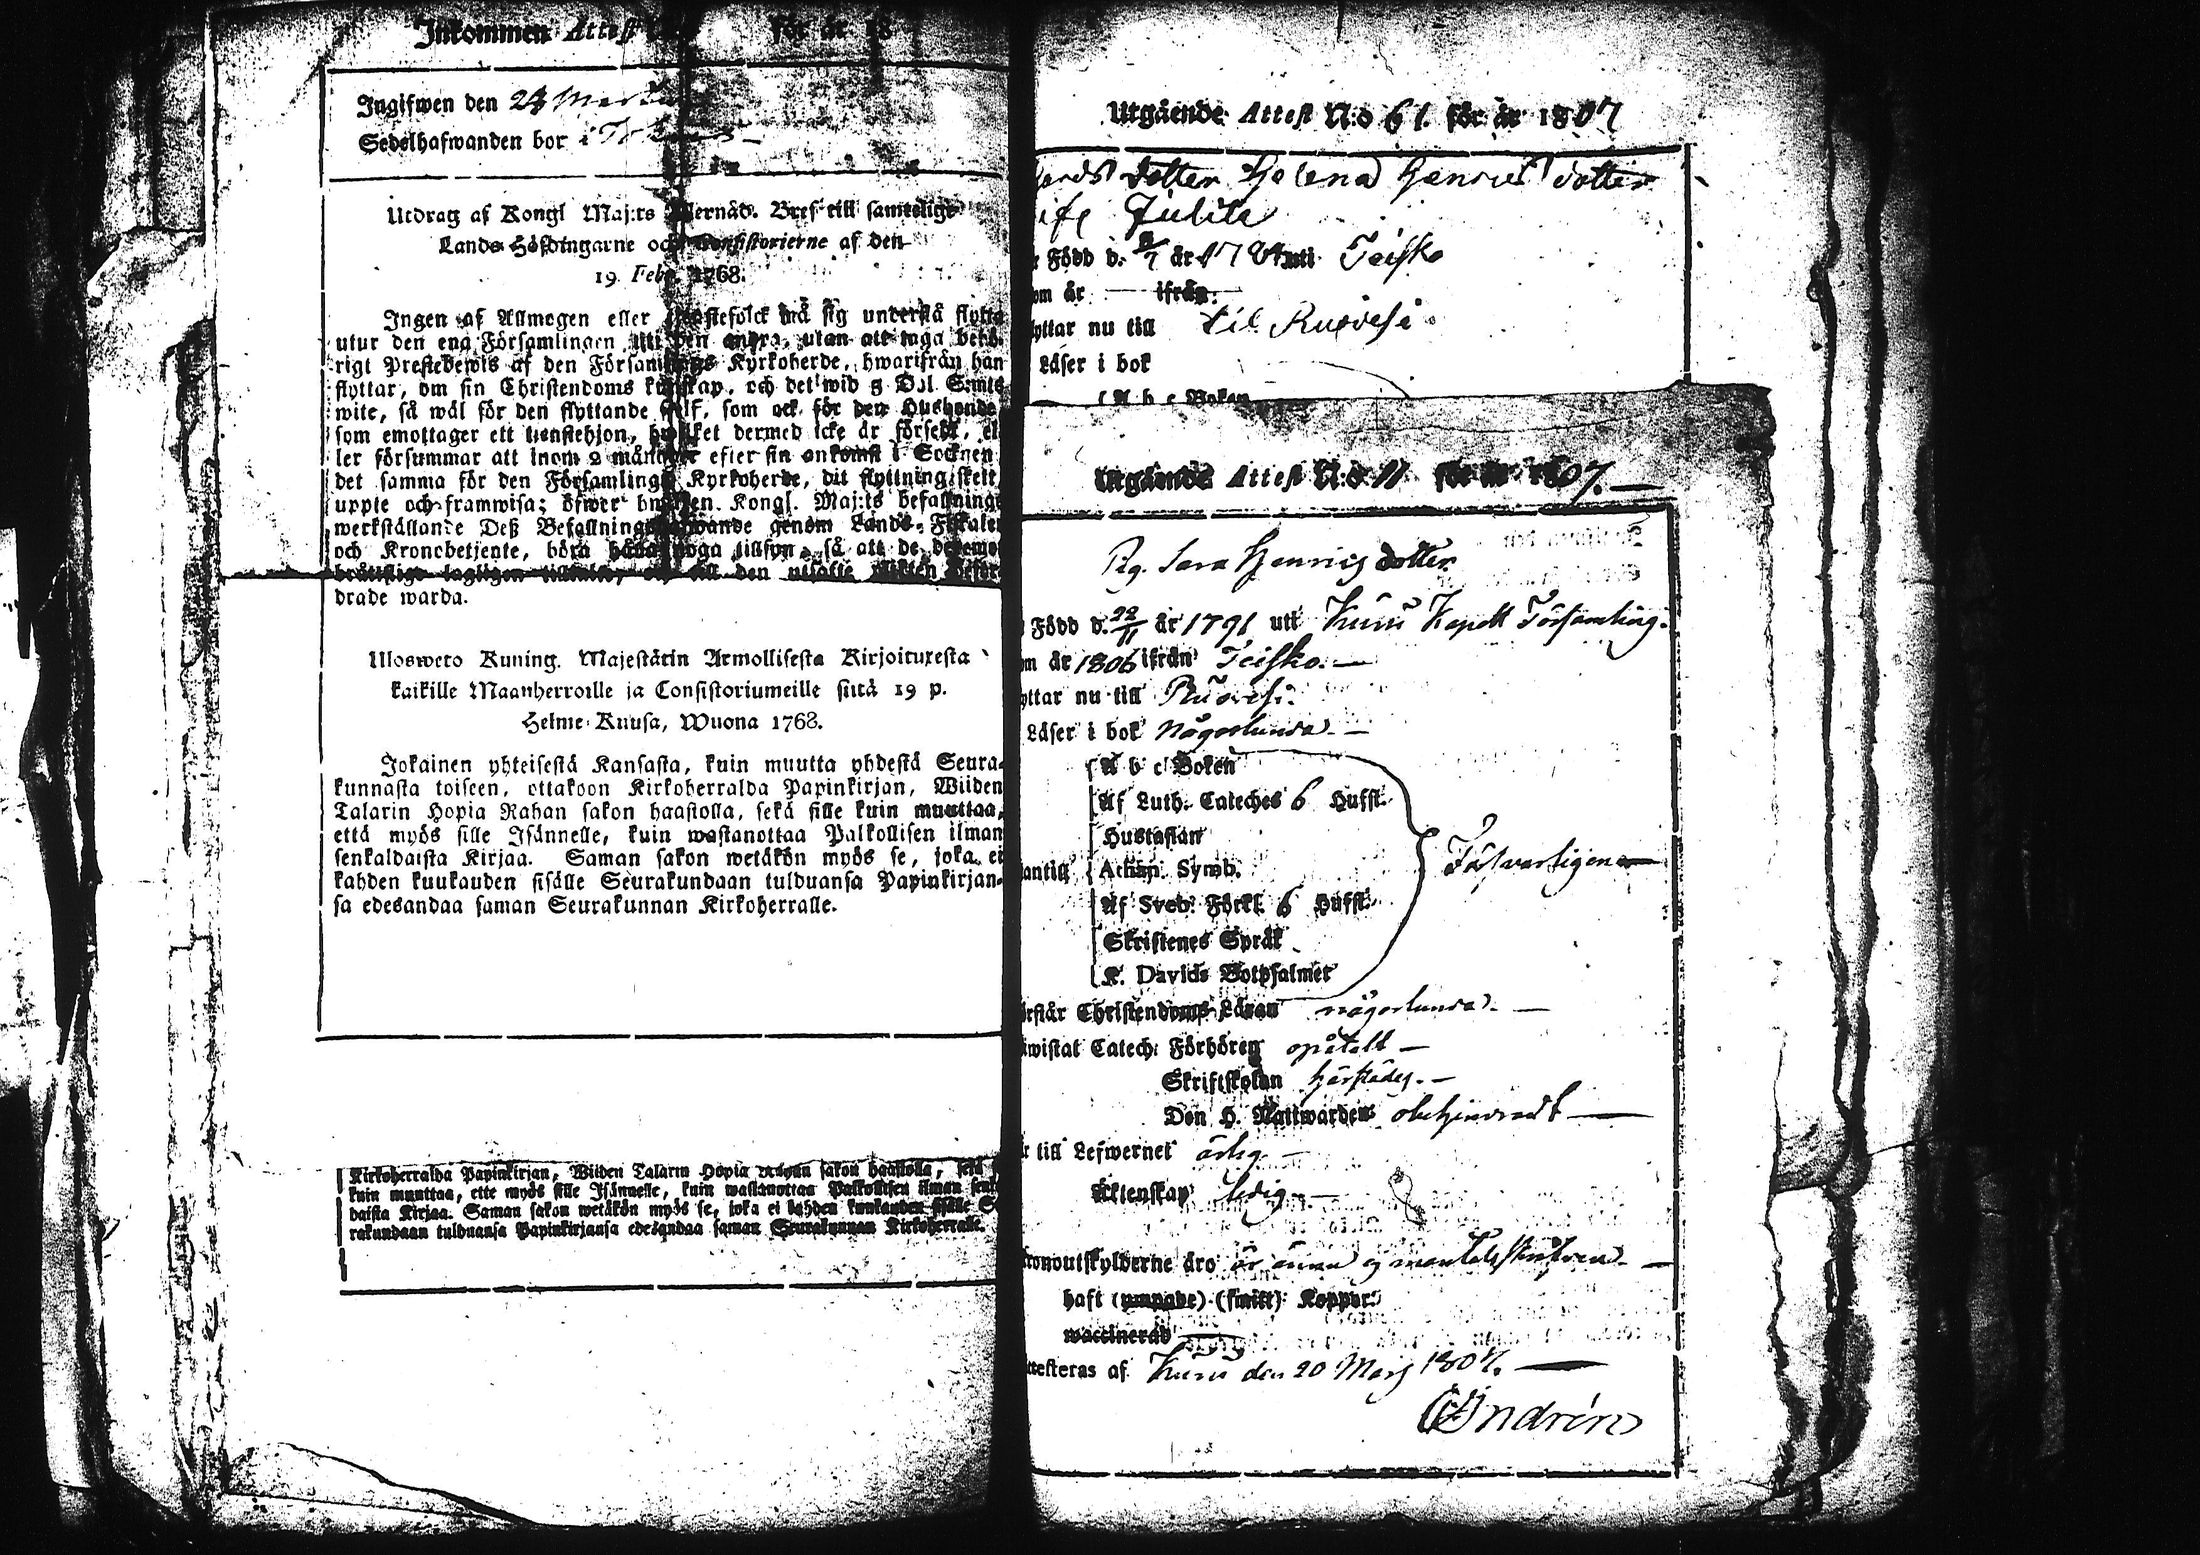 Inkommen Attest för år 18
Ingifwen den 24 Martii
Sedelhafwanden bor i
Utdrag af Kongl Maj:ts Bref till samtelige
Lands-Höfdingarne och Consistorierne af den
19. Febr. 1768.
Ingen af Allmogen eller Tjenstefolck må sig understå flytta
utur den ena Församlingen till den andra, utan att taga behö-
rigt Prestebewis af den Församlings Kyrkoherde, hwarifrån han
flyttar, om sin Christendoms kunskap, och det wid 5 Dal. S:mts
wite, så wäl för den flyttande sielf, som ock för den Husbonde
som emottager ett tienstehjon, hwilket dermed icke är försedt, el-
ler försummar att inom 2 månader efter sin ankomst i Socknen
det samma för den Församlings Kyrkoherde, dit flyttning skett,
uppte och framwisa; öfwer hwilken Kongl. Maj:ts befallnings
werkställande Deß Befallningshafwande genom Lands-Fiskaler
och Kronobetjente, böra hafwa noga tillsyn, så att de deremot
bråttslige lagligen tilltalte, och till den utsatte plikten befor-
drade warda.
Ulosweto Kuning. Majestätin Armollisesta Kirjoituxesta
kaikille Maanherroille ja Consistoriumeille siitä 19 p.
Helme-Kuusa, Wuona 1768.
Jokainen yhteisestä Kansasta, kuin muutta yhdestä Seura-
kunnasta toiseen, ottakoon Kirkoherralda Papinkirjan, Wiiden
Talarin Hopia Rahan sakon haastolla, sekä sille kuin muuttaa,
että myös sille Isännelle, kuin wastanottaa Palkollisen ilman
senkaldaista Kirjaa. Saman sakon wetäkön myös se, joka ei
kahden kuukauden sisälle Seurakundaan tulduansa Papinkirjan-
sa edesandaa saman Seurakunnan Kirkoherralle.
Kirkoherralda Papinkirjan, Wiiden Talarin Hopia Rahan sakon haastolla, sekä
kuin muuttaa, ette myös sille Isännelle, kuin wastanottaa Palkollisen ilman senk
daista Kirjaa. Saman sakon wetäkön myös se, joka ei kahden kuukauden sisälle Se
rakundaan tulduansa Papinkirjansa edesandaa saman Seurakunnan Kirkoherralle.
Utgående Attest N:o 61. för år 1807
dotter Helena Henrics dotter
Julita
Född d. år 17 uti Teisko
om år — ifrån —
yttar nu till til Ruovesi
Läser i bok
A b c Boken
Utgående Attest N:o 11 för år 1807. —
Pig. Sara Henrics dotter
Född d. 22/11 år 1791 uti Kuru Kapell Församling.
om år 1806 ifrån Teisko. —
yttar nu till Ruovesi.
Läser i bok någorlunda. —
A b c Boken
Af Luth. Cateches 6 Hufst.
Hustaflan
Athan. Symb.
antill
Af Sveb. Förkl. 6 Hufst.
Skriftenes Språk
K. Davids Botpsalmer
Försvarligen —
rstår Christendoms-Läran någorlunda. —
wistat Catech. Förhören opåtalt —
Skriftskolan härstädes. —
Den H. Nattwarden obehindradt —
r till Lefwernet ärlig —
Äktenskap ledig. —
ronoutskylderne äro är ännu ej mantalsskrifven. —
haft (ympade) (smitt) Koppor.
waccinerad —
ttesteras af Kuru den 20 Mars 1807. —